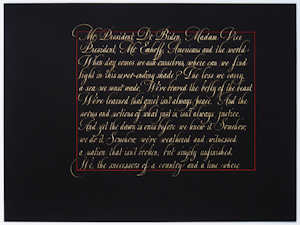 Mr. President, Dr. Biden, Madam Vice
President, Mr. Emhoff, Americans and the world:
When day comes we ask ourselves, where can we find
light in this never-ending shade? The loss we carry,
a sea we must wade. We've braved the belly of the beast.
We've learned that quiet isn't always peace. And the
norms and notions of what just is, isn't always justice.
And yet the dawn is ours before we knew it. Somehow,
we do it. Somehow, we've weathered and witnessed
a nation that isn't broken, but simply unfinished.
We, the successors of a country and a time where